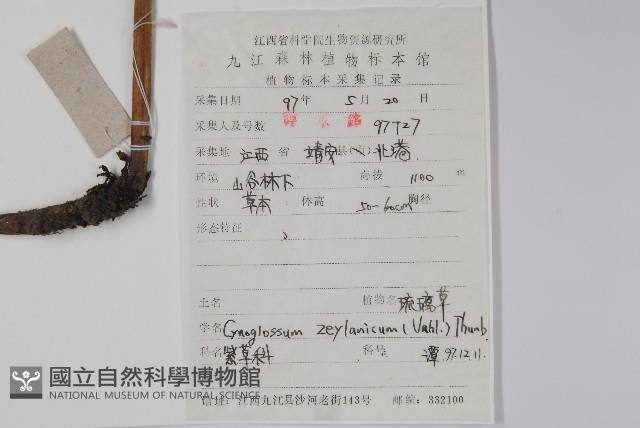 江西省科学院生物资源研究所
九江森林植物标本馆
植物标本采集记录
采集日期 97年 5月 20日
采集人及号数 97727
采集地 江西省 靖安县
环境 山谷林下 海拔 1100 m
性状 草本 体高 50-60cm 胸径
形态特征
土名 植物名 琉璃草
学名 Cynoglossum zeylanicum (Vahl.) Thunb.
科名 紫草科 科号 谭 97.12.11.
國立自然科學博物館
NATIONAL MUSEUM OF NATURAL SCIENCE
江西九江县沙河老街143号 邮编: 332100